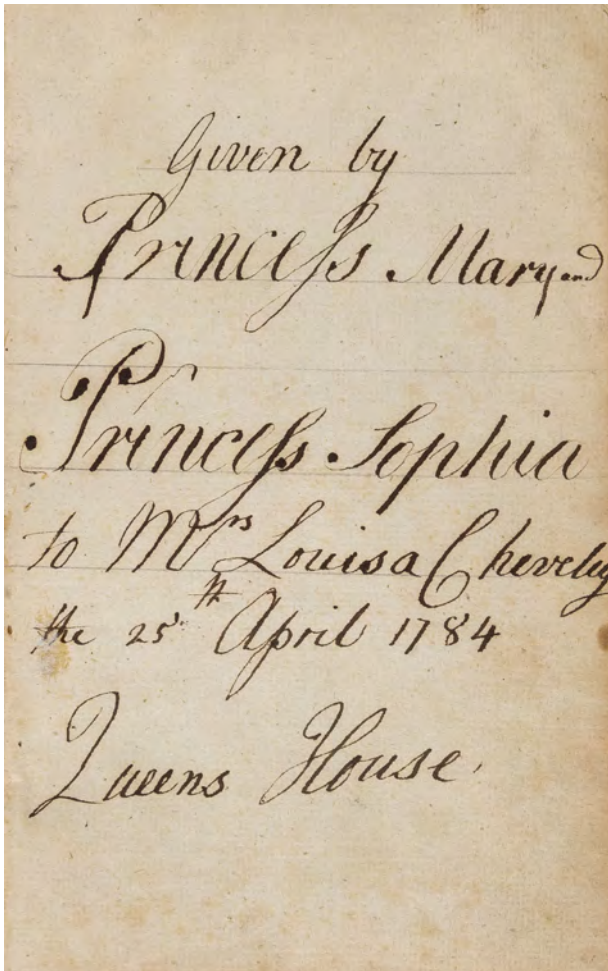 Given by
Princess Mary and
Princess Sophia
to Mrs Louisa Cheveley
the 25th April 1784
Queens House.